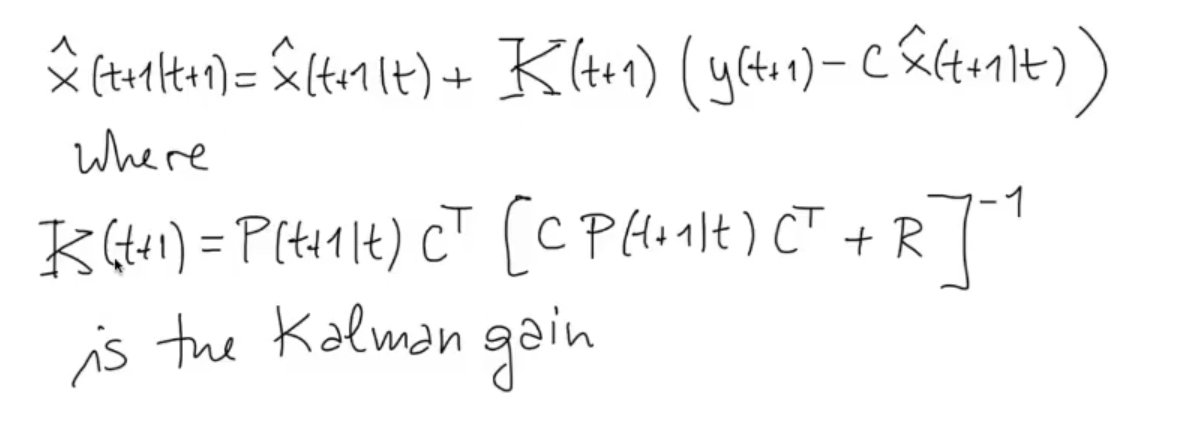 x̂(t+1|t+1) = x̂(t+1|t) + K(t+1) (y(t+1) - C x̂(t+1|t))
where
K(t+1) = P(t+1|t) Cᵀ [C P(t+1|t) Cᵀ + R]⁻¹
is the Kalman gain